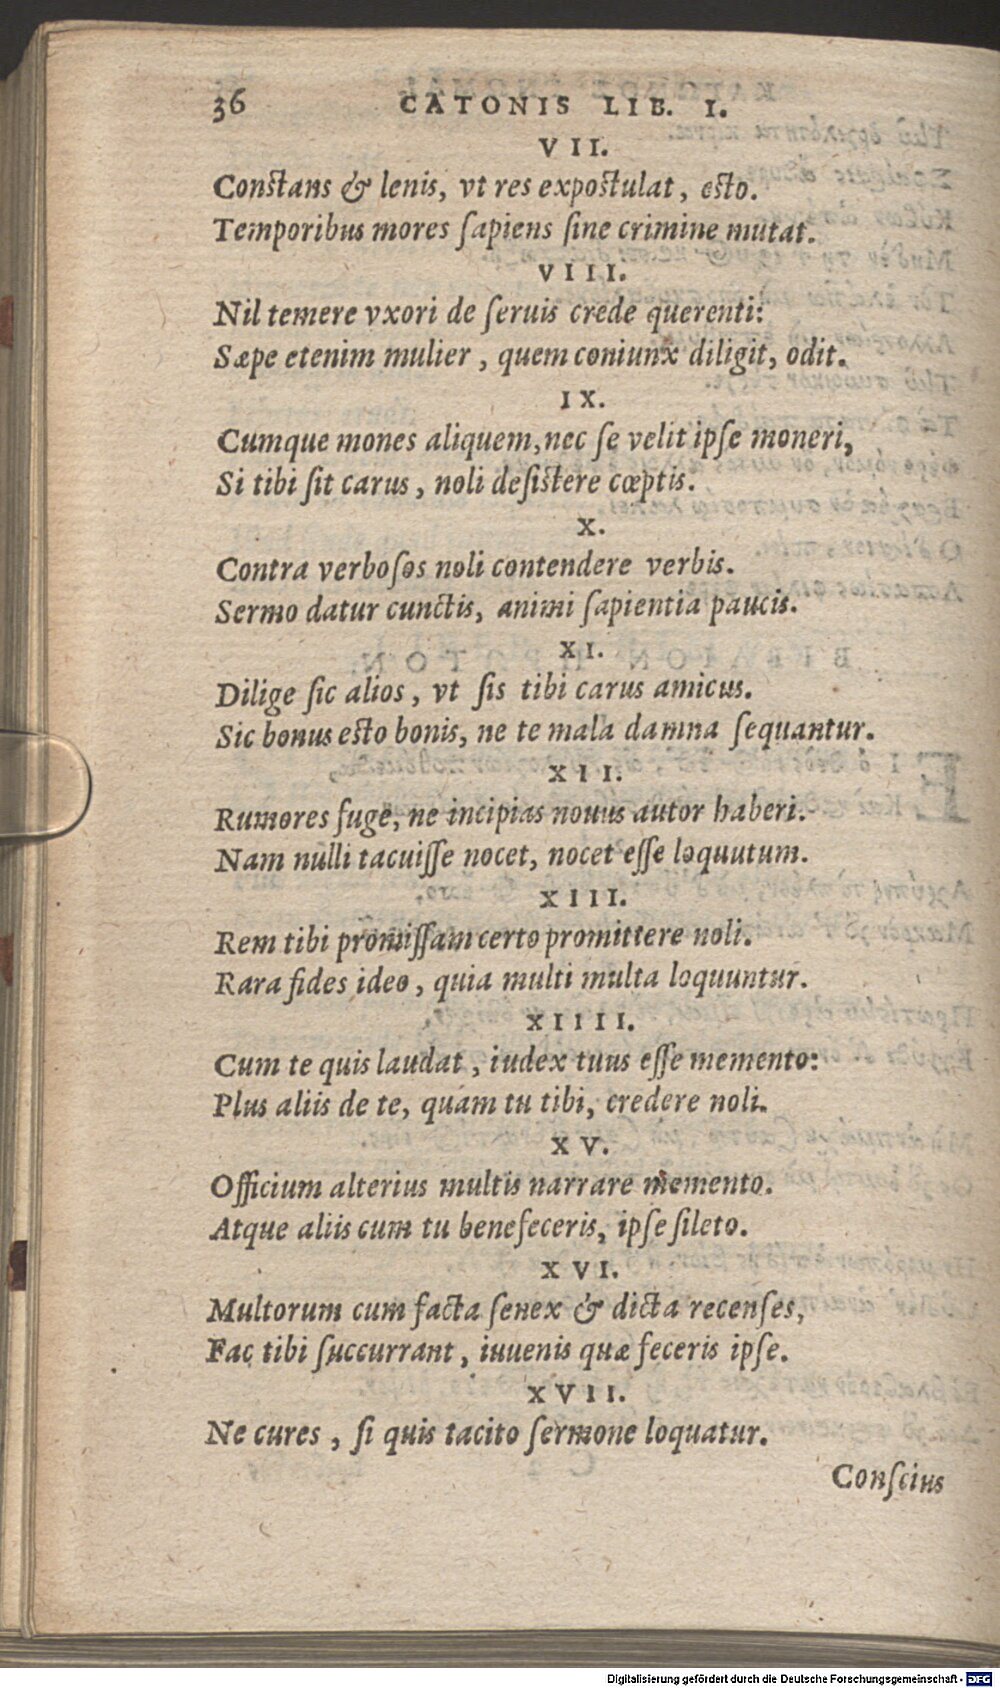 36 CATONIS LIB. I.
VII.
Constans & lenis, vt res expostulat, esto.
Temporibus mores ſapiens ſine crimine mutat.
VIII.
Nil temere vxori de ſeruis crede querenti:
Sæpe etenim mulier, quem coniunx diligit, odit.
IX.
Cumque mones aliquem, nec ſe velit ipſe moneri,
Si tibi ſit carus, noli deſistere cœptis.
X.
Contra verboſos noli contendere verbis.
Sermo datur cunctis, animi ſapientia paucis.
XI.
Dilige ſic alios, vt ſis tibi carus amicus.
Sic bonus esto bonis, ne te mala damna ſequantur.
XII.
Rumores fuge, ne incipias nouus autor haberi.
Nam nulli tacuiſſe nocet, nocet eſſe loquutum.
XIII.
Rem tibi promiſſam certo promittere noli.
Rara fides ideo, quia multi multa loquuntur.
XIIII.
Cum te quis laudat, iudex tuus eſſe memento:
Plus aliis de te, quàm tu tibi, credere noli.
XV.
Officium alterius multis narrare memento.
Atque aliis cum tu benefeceris, ipſe ſileto.
XVI.
Multorum cum facta ſenex & dicta recenſes,
Fac tibi ſuccurrant, iuuenis quæ feceris ipſe.
XVII.
Ne cures, ſi quis tacito ſermone loquatur.
Conſcius
Digitalisierung gefördert durch die Deutsche Forschungsgemeinschaft - DFG